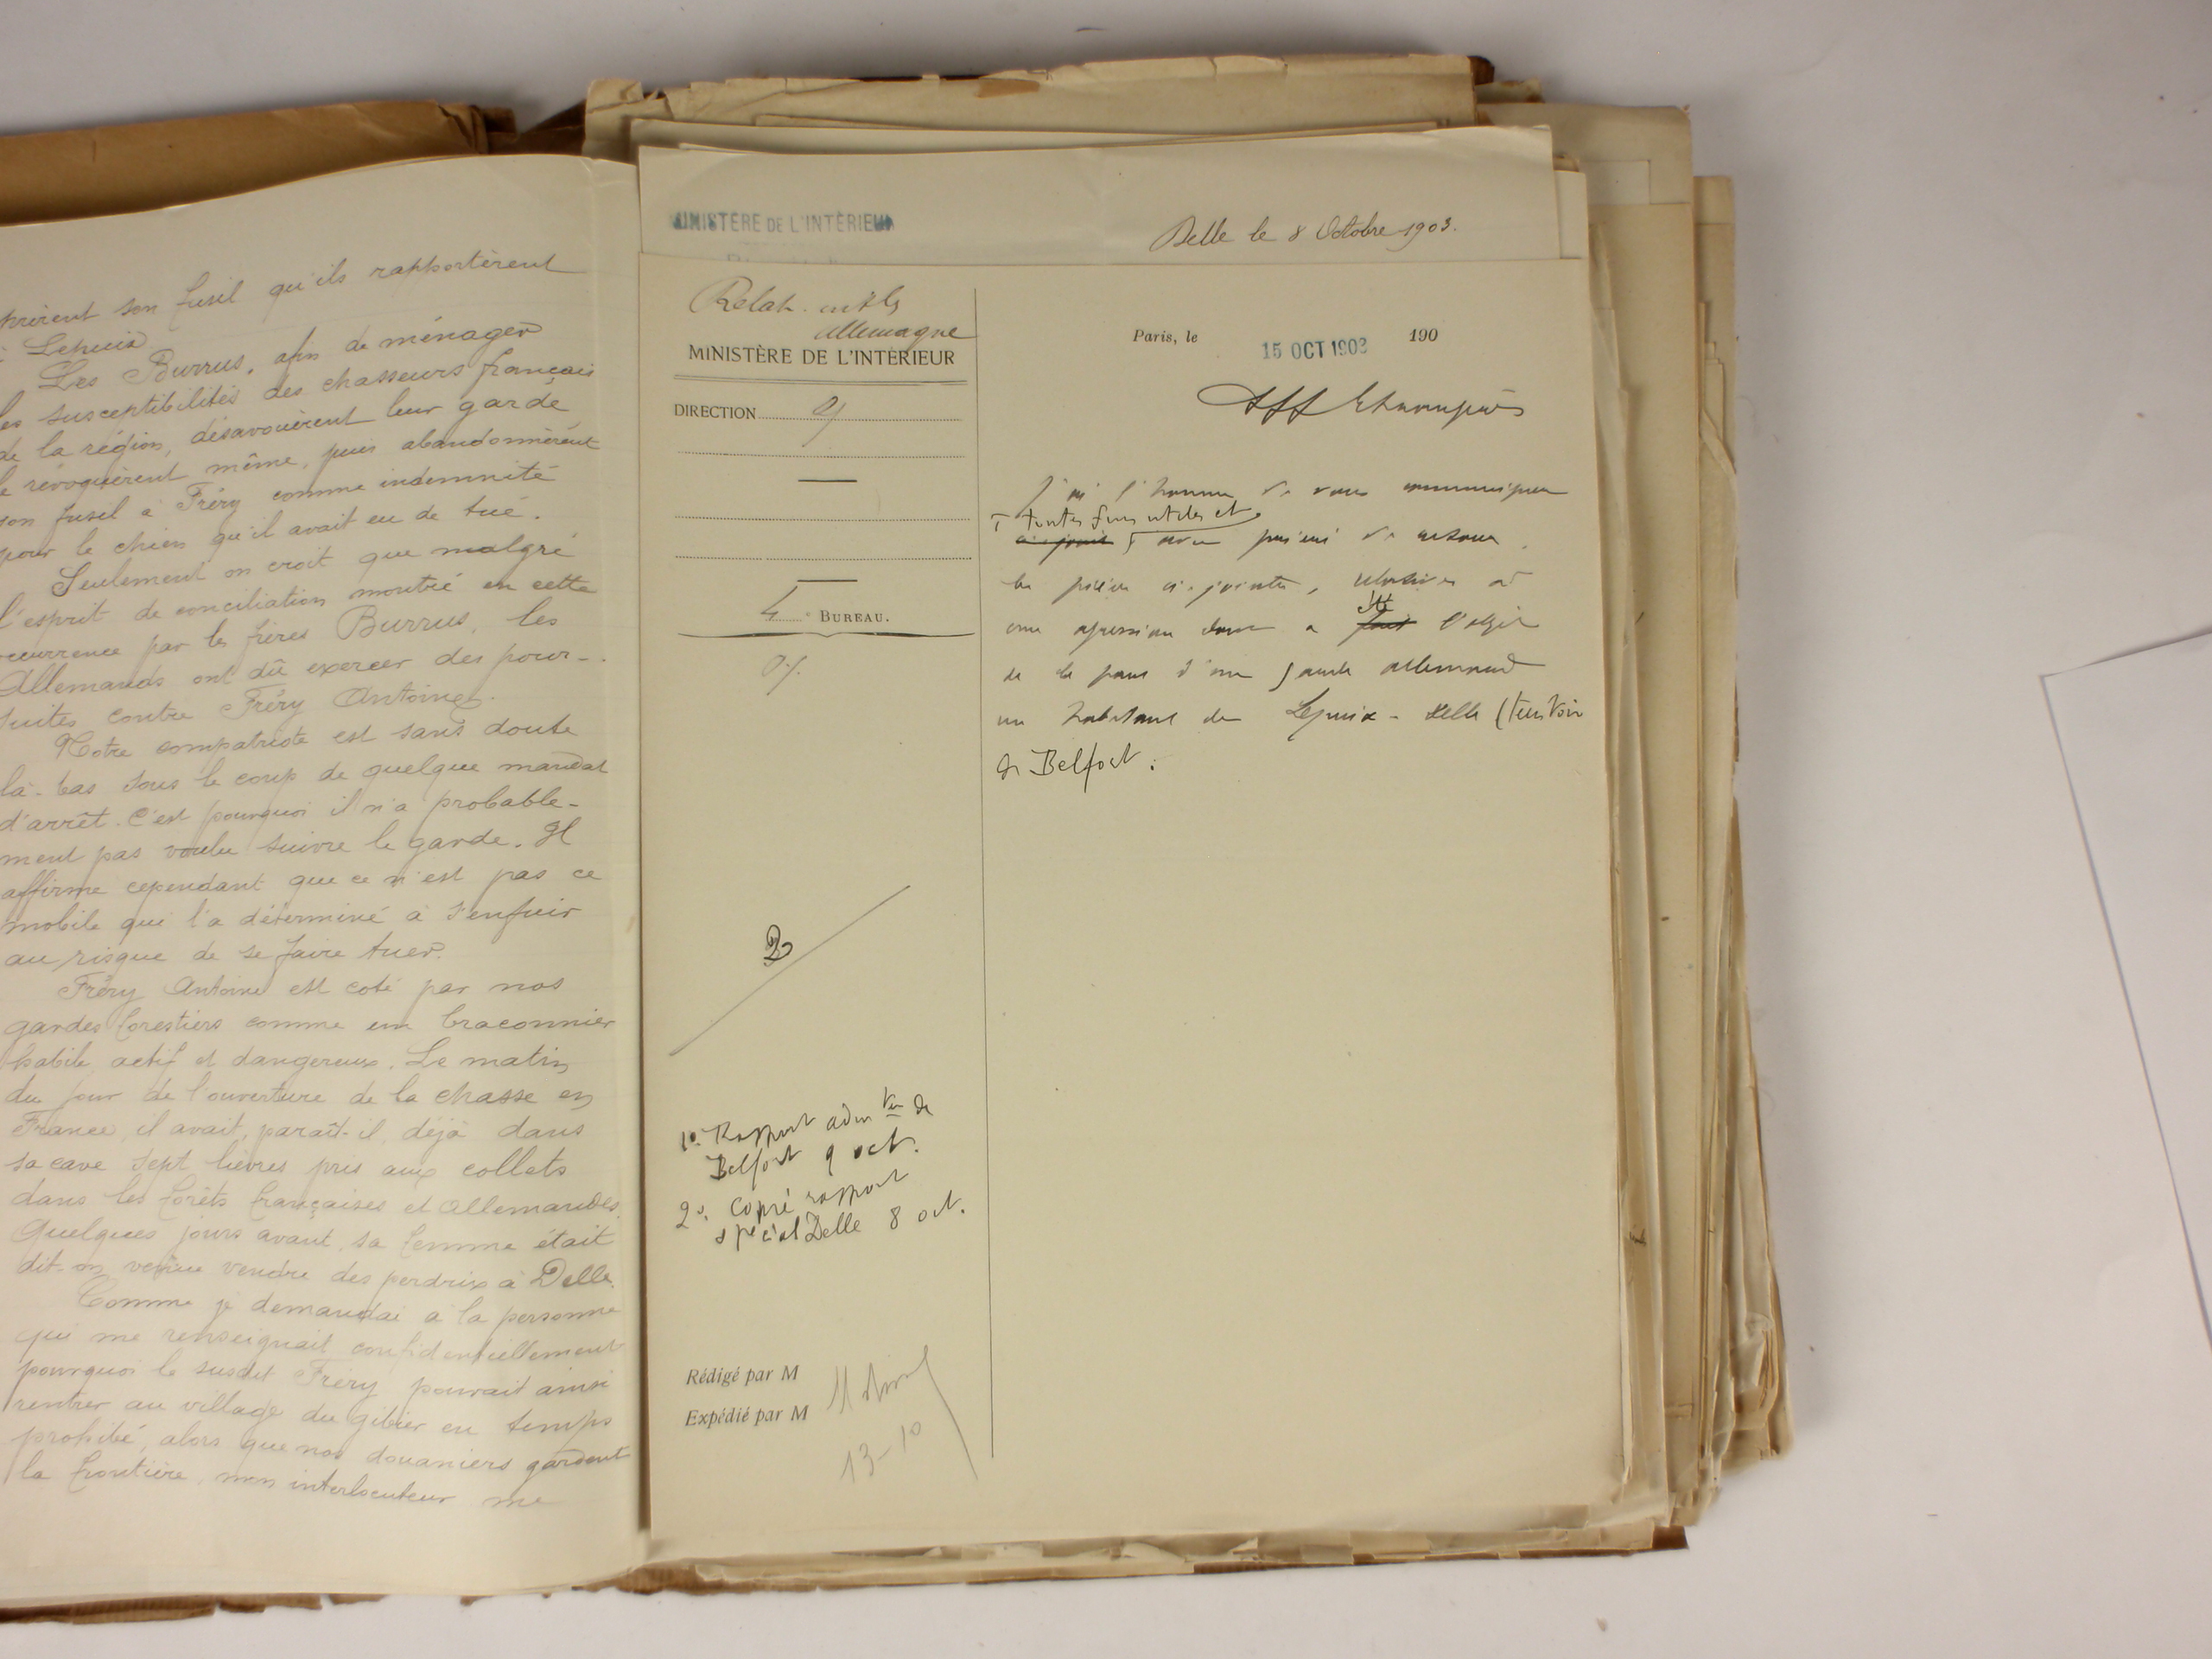 prirent son fusil qu'ils rapportèrent
à Lepuix
Les Burrus, afin de ménager
les susceptibilités des chasseurs français
de la région, désavouèrent leur garde,
le révoquèrent même, puis abandonnèrent
son fusil à Fréry comme indemnité
pour le chien qu'il avait eu de tué.
Seulement on croit que malgré
l'esprit de conciliation montré en cette
occurrence par les frères Burrus, les
Allemands ont dû exercer des pour-
suites contre Fréry Antoine.
Notre compatriote est sans doute
là-bas sous le coup de quelque mandat
d'arrêt. C'est pourquoi il n'a probable-
ment pas voulu suivre le garde. Il
affirme cependant que ce n'est pas ce
mobile qui l'a déterminé à s'enfuir
au risque de se faire tuer.
Fréry Antoine est coté par nos
gardes forestiers comme un braconnier
habile, actif et dangereux. Le matin
du jour de l'ouverture de la chasse en
France, il avait, paraît-il, déjà dans
sa cave sept lièvres pris aux collets
dans les forêts françaises et allemandes.
Quelques jours avant, sa femme était
dit-on venue vendre des perdrix à Delle.
Comme je demandai à la personne
qui me renseignait confidentiellement
pourquoi le susdit Fréry pouvait ainsi
rentrer au village du gibier en temps
prohibé, alors que nos douaniers gardent
la frontière, mon interlocuteur me
MINISTÈRE DE L'INTÉRIEUR
Delle le 8 Octobre 1903.
Relat. intles
Allemagne
MINISTÈRE DE L'INTÉRIEUR
DIRECTION
4e BUREAU.
2
1o. Rapport admr de
Belfort 9 oct.
2o. Copie rapport
spécial Delle 8 oct.
Rédigé par M
Expédié par M
13-10
Paris, le 15 OCT 1903 190
Aff Etrangères
J'ai l'honneur de vous communiquer
toutes fins utiles et
ci-joint avec prière de retour
les pièces ci-jointes, relatives à
une agression dont a été fait l'objet
de la part d'un garde allemand
un habitant de Lepuix-Delle (territoire
de Belfort.